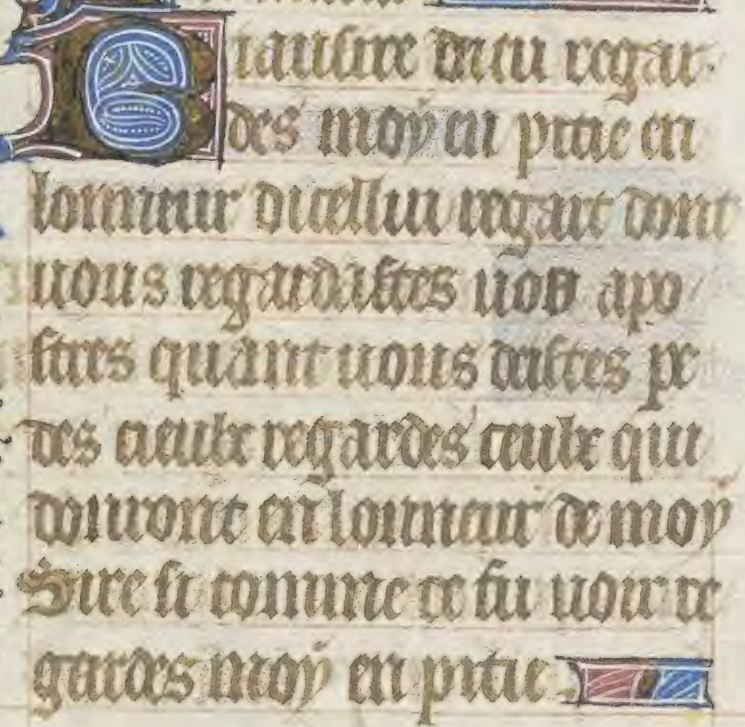 Biausire dieu regar
des moy en pitie en
lonneur dicellui regart dont
uous regardastes uos apo
stres quant uous deistes pe
des cieulx regardes ceulx qui
douront en lonneur de moy
Sire si comme ce fu uoir re
gardes moy en pitie